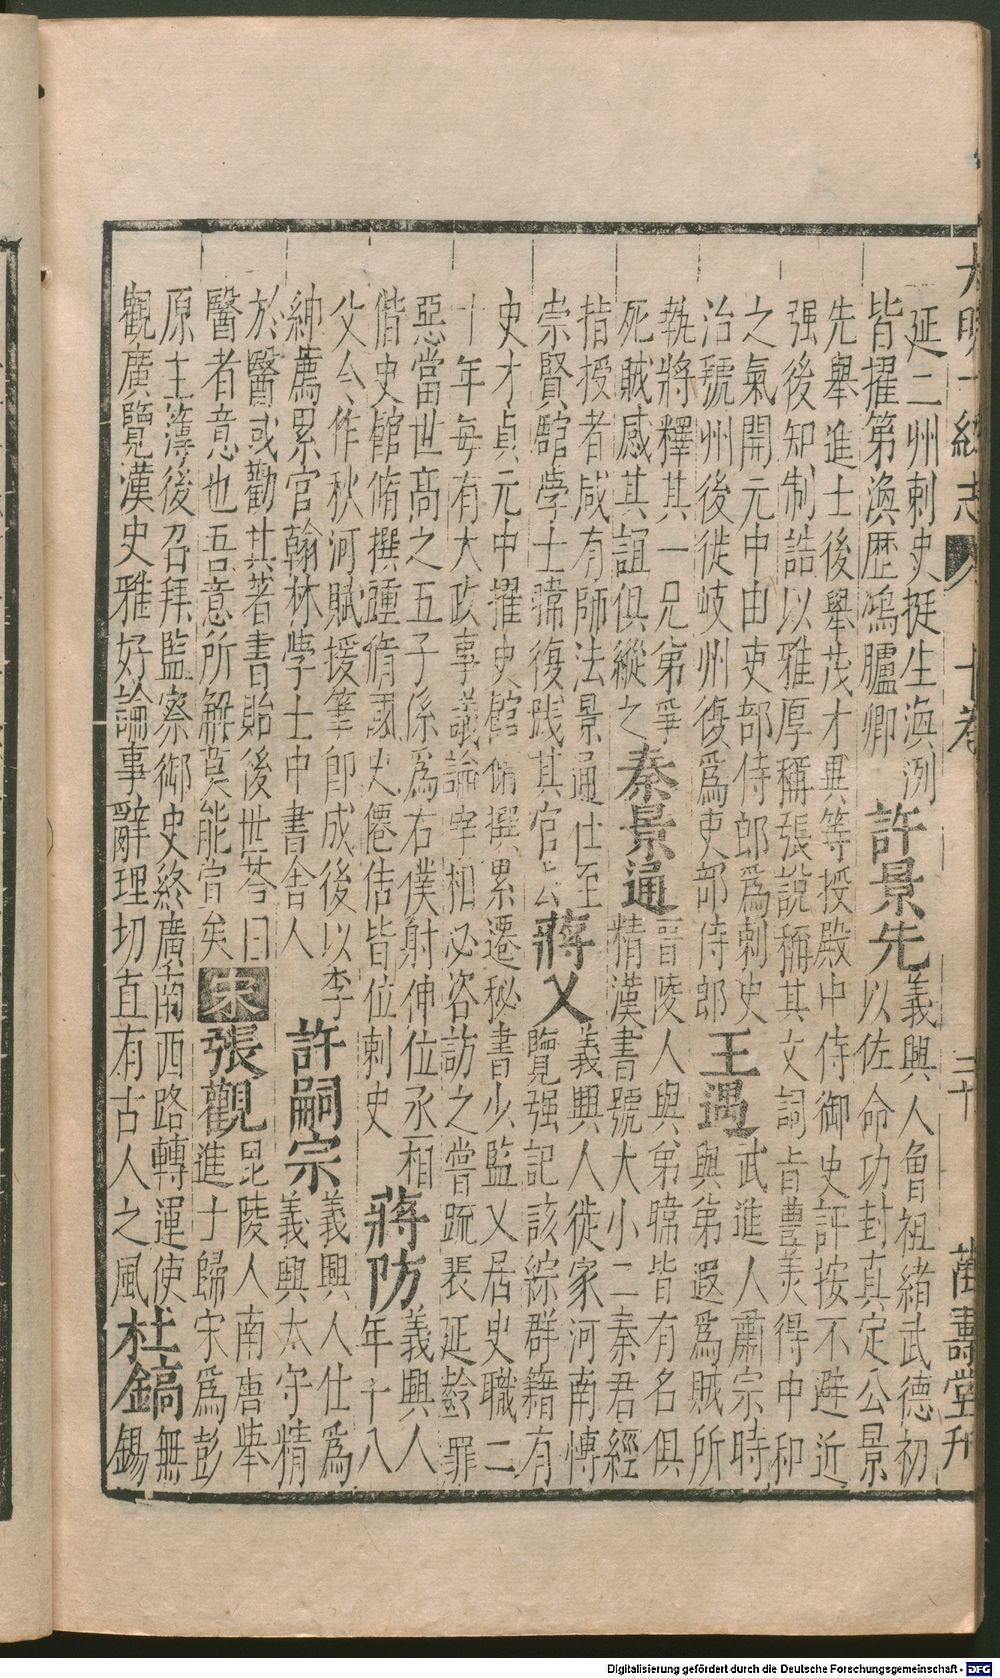 大明一統志 十卷 三十 萬壽堂刊
延二州刺史挺生海洌
皆擢第渙歷鴻臚卿
許景先
義興人曾祖緒武德初
以佐命功封真定公景
先舉進士後舉茂才異等授殿中侍御史評按不避近
强後知制誥以雅厚稱張說稱其文詞旨豐美得中和
之氣開元中由吏部侍郎為刺史
治虢州後徙岐州復為吏部侍郎
王遇
武進人肅宗時
與第遐為賊所
執將釋其一兄第爭
死賊感其誼俱縱之
秦景通
晉陵人與弟暐皆有名俱
精漢書號大小二秦君經
指授者咸有師法景通仕至
崇賢館學士暐復踐其官云
蔣乂
義興人徙家河南愽
覽强記該綜群籍有
史才貞元中擢史館脩撰累遷秘書少監乂居史職二
十年每有大政事議論宰相必咨訪之嘗䟽裴延齡罪
惡當世高之五子係為右僕射伸位丞相
偕史館脩撰踵脩國史僊佶皆位刺史
蔣防
義興人
年十八
父令作秋河賦援筆即成後以李
紳薦累官翰林學士中書舍人
許嗣宗
義興人仕為
義興太守精
於醫或勸其著書貽後世荅曰
醫者意也吾意所解莫能宣矣
宋
張觀
毘陵人南唐舉
進士歸宋為彭
原主薄後召拜監察御史終廣南西路轉運使
觀廣覽漢史雅好論事辭理切直有古人之風
杜鎬
無
錫
Digitalisierung gefördert durch die Deutsche Forschungsgemeinschaft - DFG